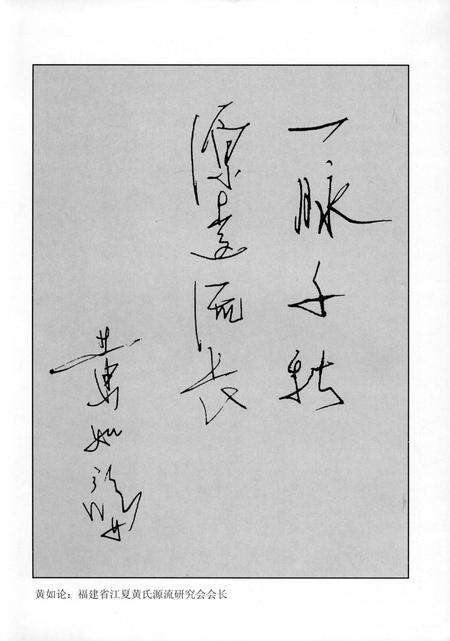 一脉千秋
源远流长
黄如论
黄如论：福建省江夏黄氏源流研究会会长